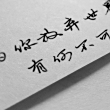 你放弃世界
有何不可